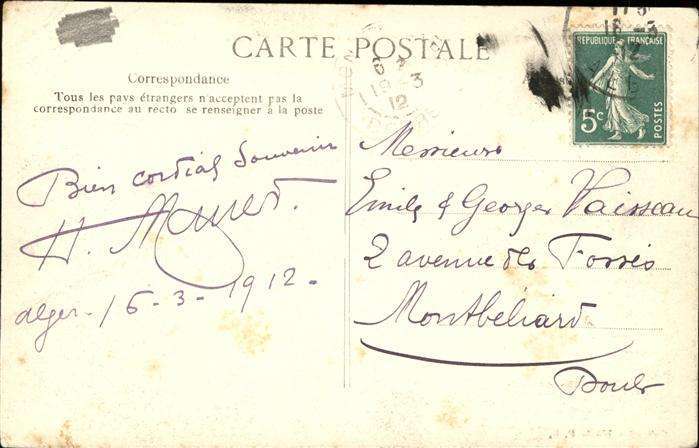 CARTE POSTALE
Correspondance
Tous les pays étrangers n'acceptent pas la
correspondance au recto se renseigner à la poste
Bien cordial Souvenir
H.
Alger. 16-3-1912.
Messieurs
Emile & Georges Vaisseau
2 avenue des Fossés
Montbéliard
Doubs
REPUBLIQUE FRANÇAISE
5c
POSTES
3
12